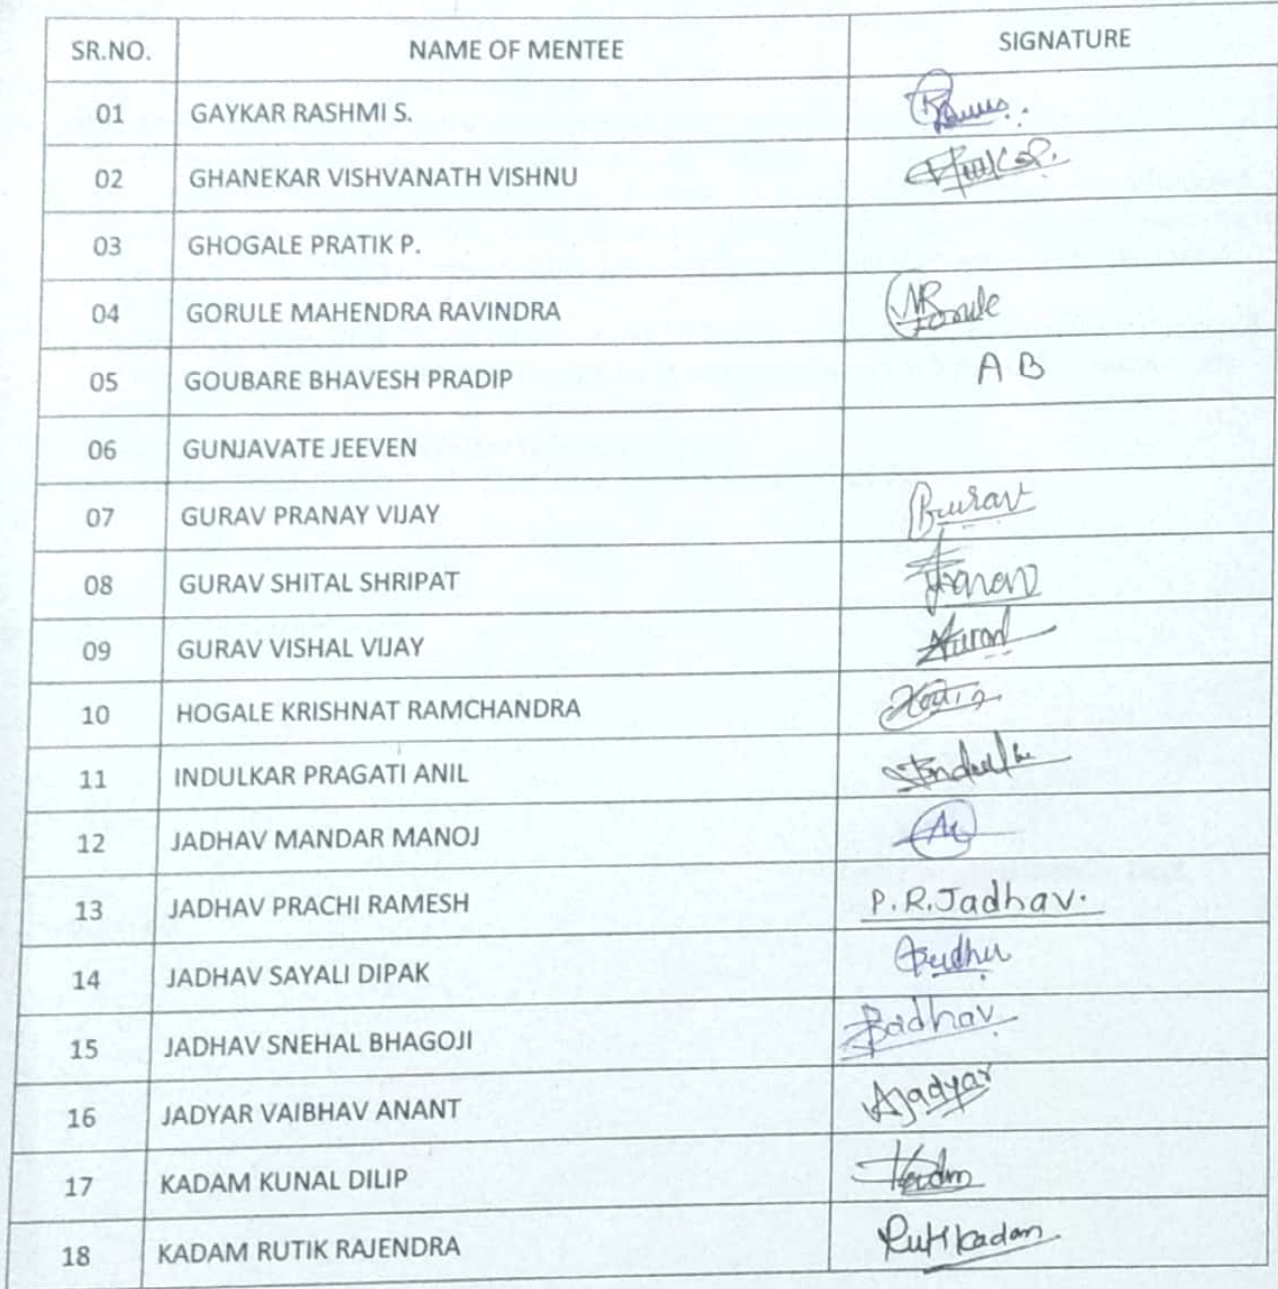 SR.NO. NAME OF MENTEE SIGNATURE
01 GAYKAR RASHMI S.
02 GHANEKAR VISHVANATH VISHNU
03 GHOGALE PRATIK P.
04 GORULE MAHENDRA RAVINDRA MR Gorule
05 GOUBARE BHAVESH PRADIP A B
06 GUNJAVATE JEEVEN
07 GURAV PRANAY VIJAY Gurav
08 GURAV SHITAL SHRIPAT
09 GURAV VISHAL VIJAY
10 HOGALE KRISHNAT RAMCHANDRA
11 INDULKAR PRAGATI ANIL
12 JADHAV MANDAR MANOJ
13 JADHAV PRACHI RAMESH P.R.Jadhav.
14 JADHAV SAYALI DIPAK
15 JADHAV SNEHAL BHAGOJI
16 JADYAR VAIBHAV ANANT VAJadyar
17 KADAM KUNAL DILIP
18 KADAM RUTIK RAJENDRA